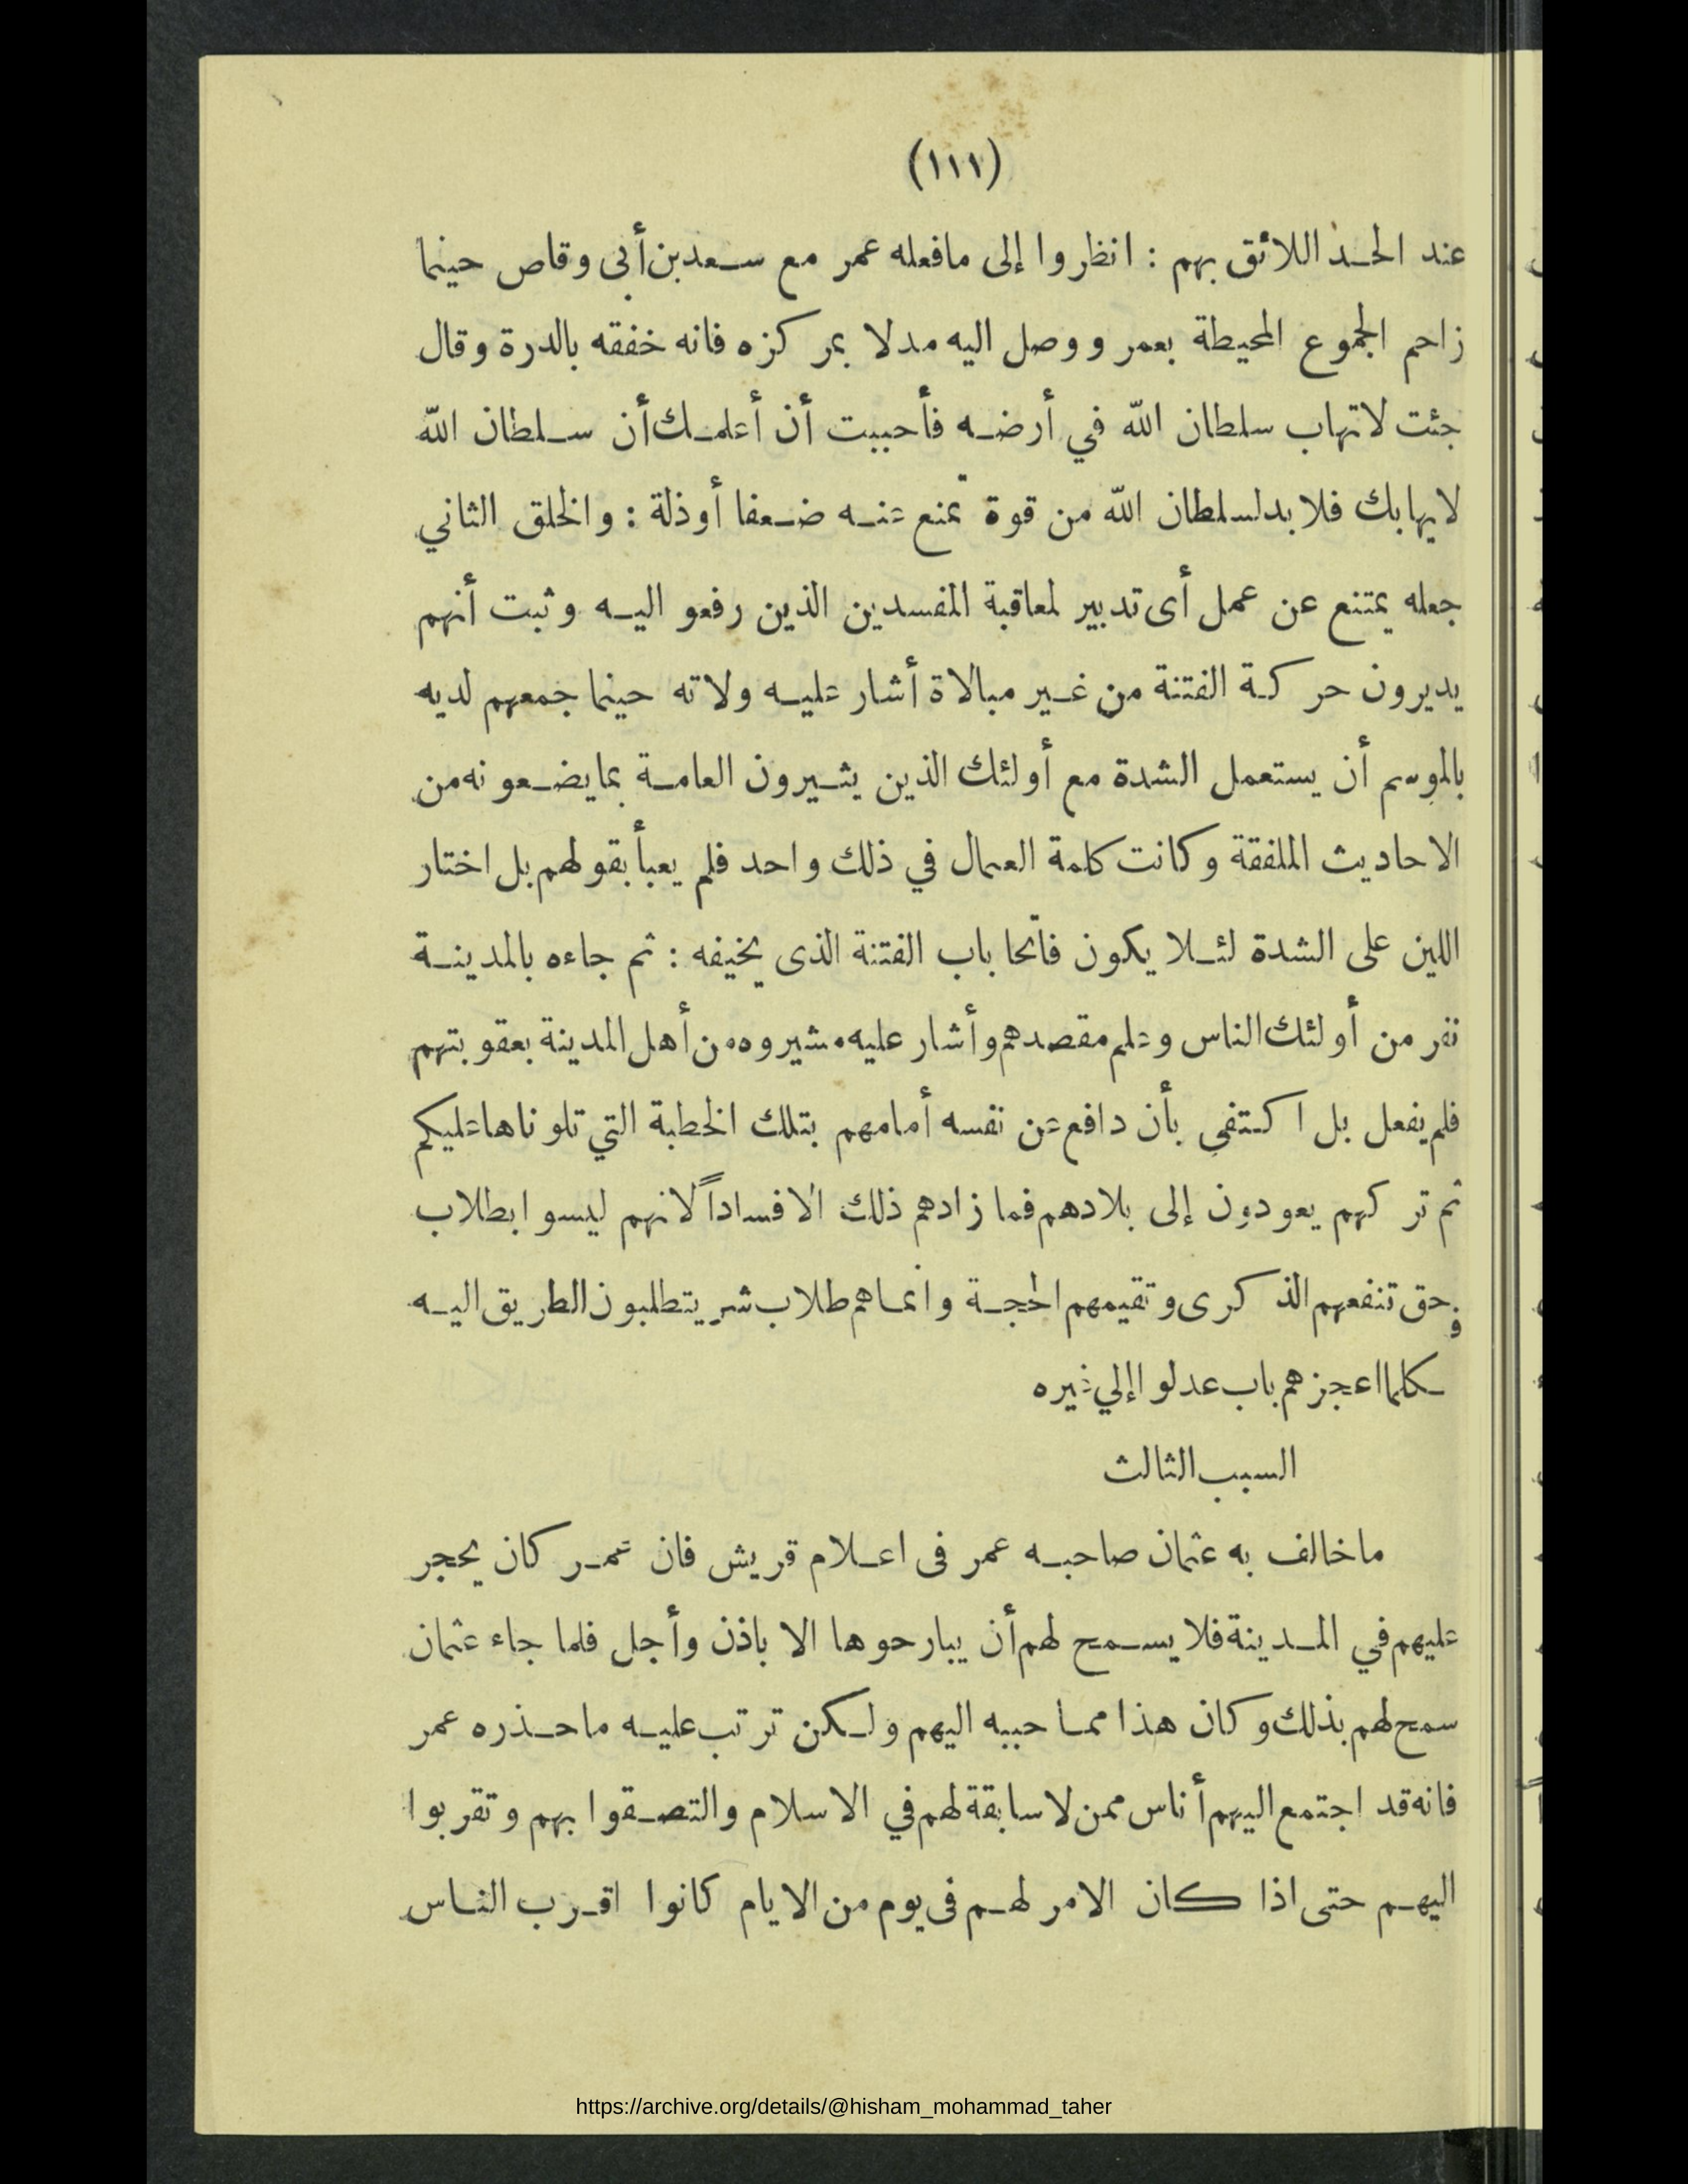 (١١١)
عند الحد اللائق بهم : انظروا إلى مافعله عمر مع سعد بن أبى وقاص حينما
زاحم الجموع المحيطة بعمر ووصل اليه مدلا بمركزه فانه خفقه بالدرة وقال
جئت لاتهاب سلطان الله في أرضه فأحببت أن أعلمك أن سلطان الله
لايهابك فلا بد لسلطان الله من قوة تمنع عنه ضعفا أوذلة : والخلق الثاني
جعله يمتنع عن عمل أى تدبير لمعاقبة المفسدين الذين رفعو اليه وثبت أنهم
يديرون حركة الفتنة من غير مبالاة أشار عليه ولاته حينما جمعهم لديه
بالموسم أن يستعمل الشدة مع أولئك الذين يثيرون العامة بمايضعونه من
الاحاديث الملفقة وكانت كلمة العمال في ذلك واحد فلم يعبأ بقولهم بل اختار
اللين على الشدة لئلا يكون فاتحا باب الفتنة الذى يخيفه : ثم جاءه بالمدينة
نفر من أولئك الناس وعلم مقصدهم وأشار عليه مشيروه من أهل المدينة بعقوبتهم
فلم يفعل بل اكتفي بأن دافع عن نفسه أمامهم بتلك الخطبة التي تلوناها عليكم
ثم تركهم يعودون إلى بلادهم فما زادهم ذلك الا فساداً لانهم ليسوا بطلاب
وحق تنفعهم الذكرى وتقيمهم الحجة وانماهم طلاب شر يتطلبون الطريق اليه
كلما اعجزهم باب عدلوا إلي غيره
السبب الثالث
ماخالف به عثمان صاحبه عمر فى اعلام قريش فان عمر كان يحجر
عليهم في المدينة فلا يسمح لهم أن يبارحوها الا باذن وأجل فلما جاء عثمان
سمح لهم بذلك وكان هذا مما حببه اليهم ولكن ترتب عليه ماحذره عمر
فانه قد اجتمع اليهم أناس ممن لاسابقة لهم في الاسلام والتصقوا بهم وتقربوا
اليهم حتى اذا كان الامر لهم فى يوم من الايام كانوا اقرب الناس
https://archive.org/details/@hisham_mohammad_taher